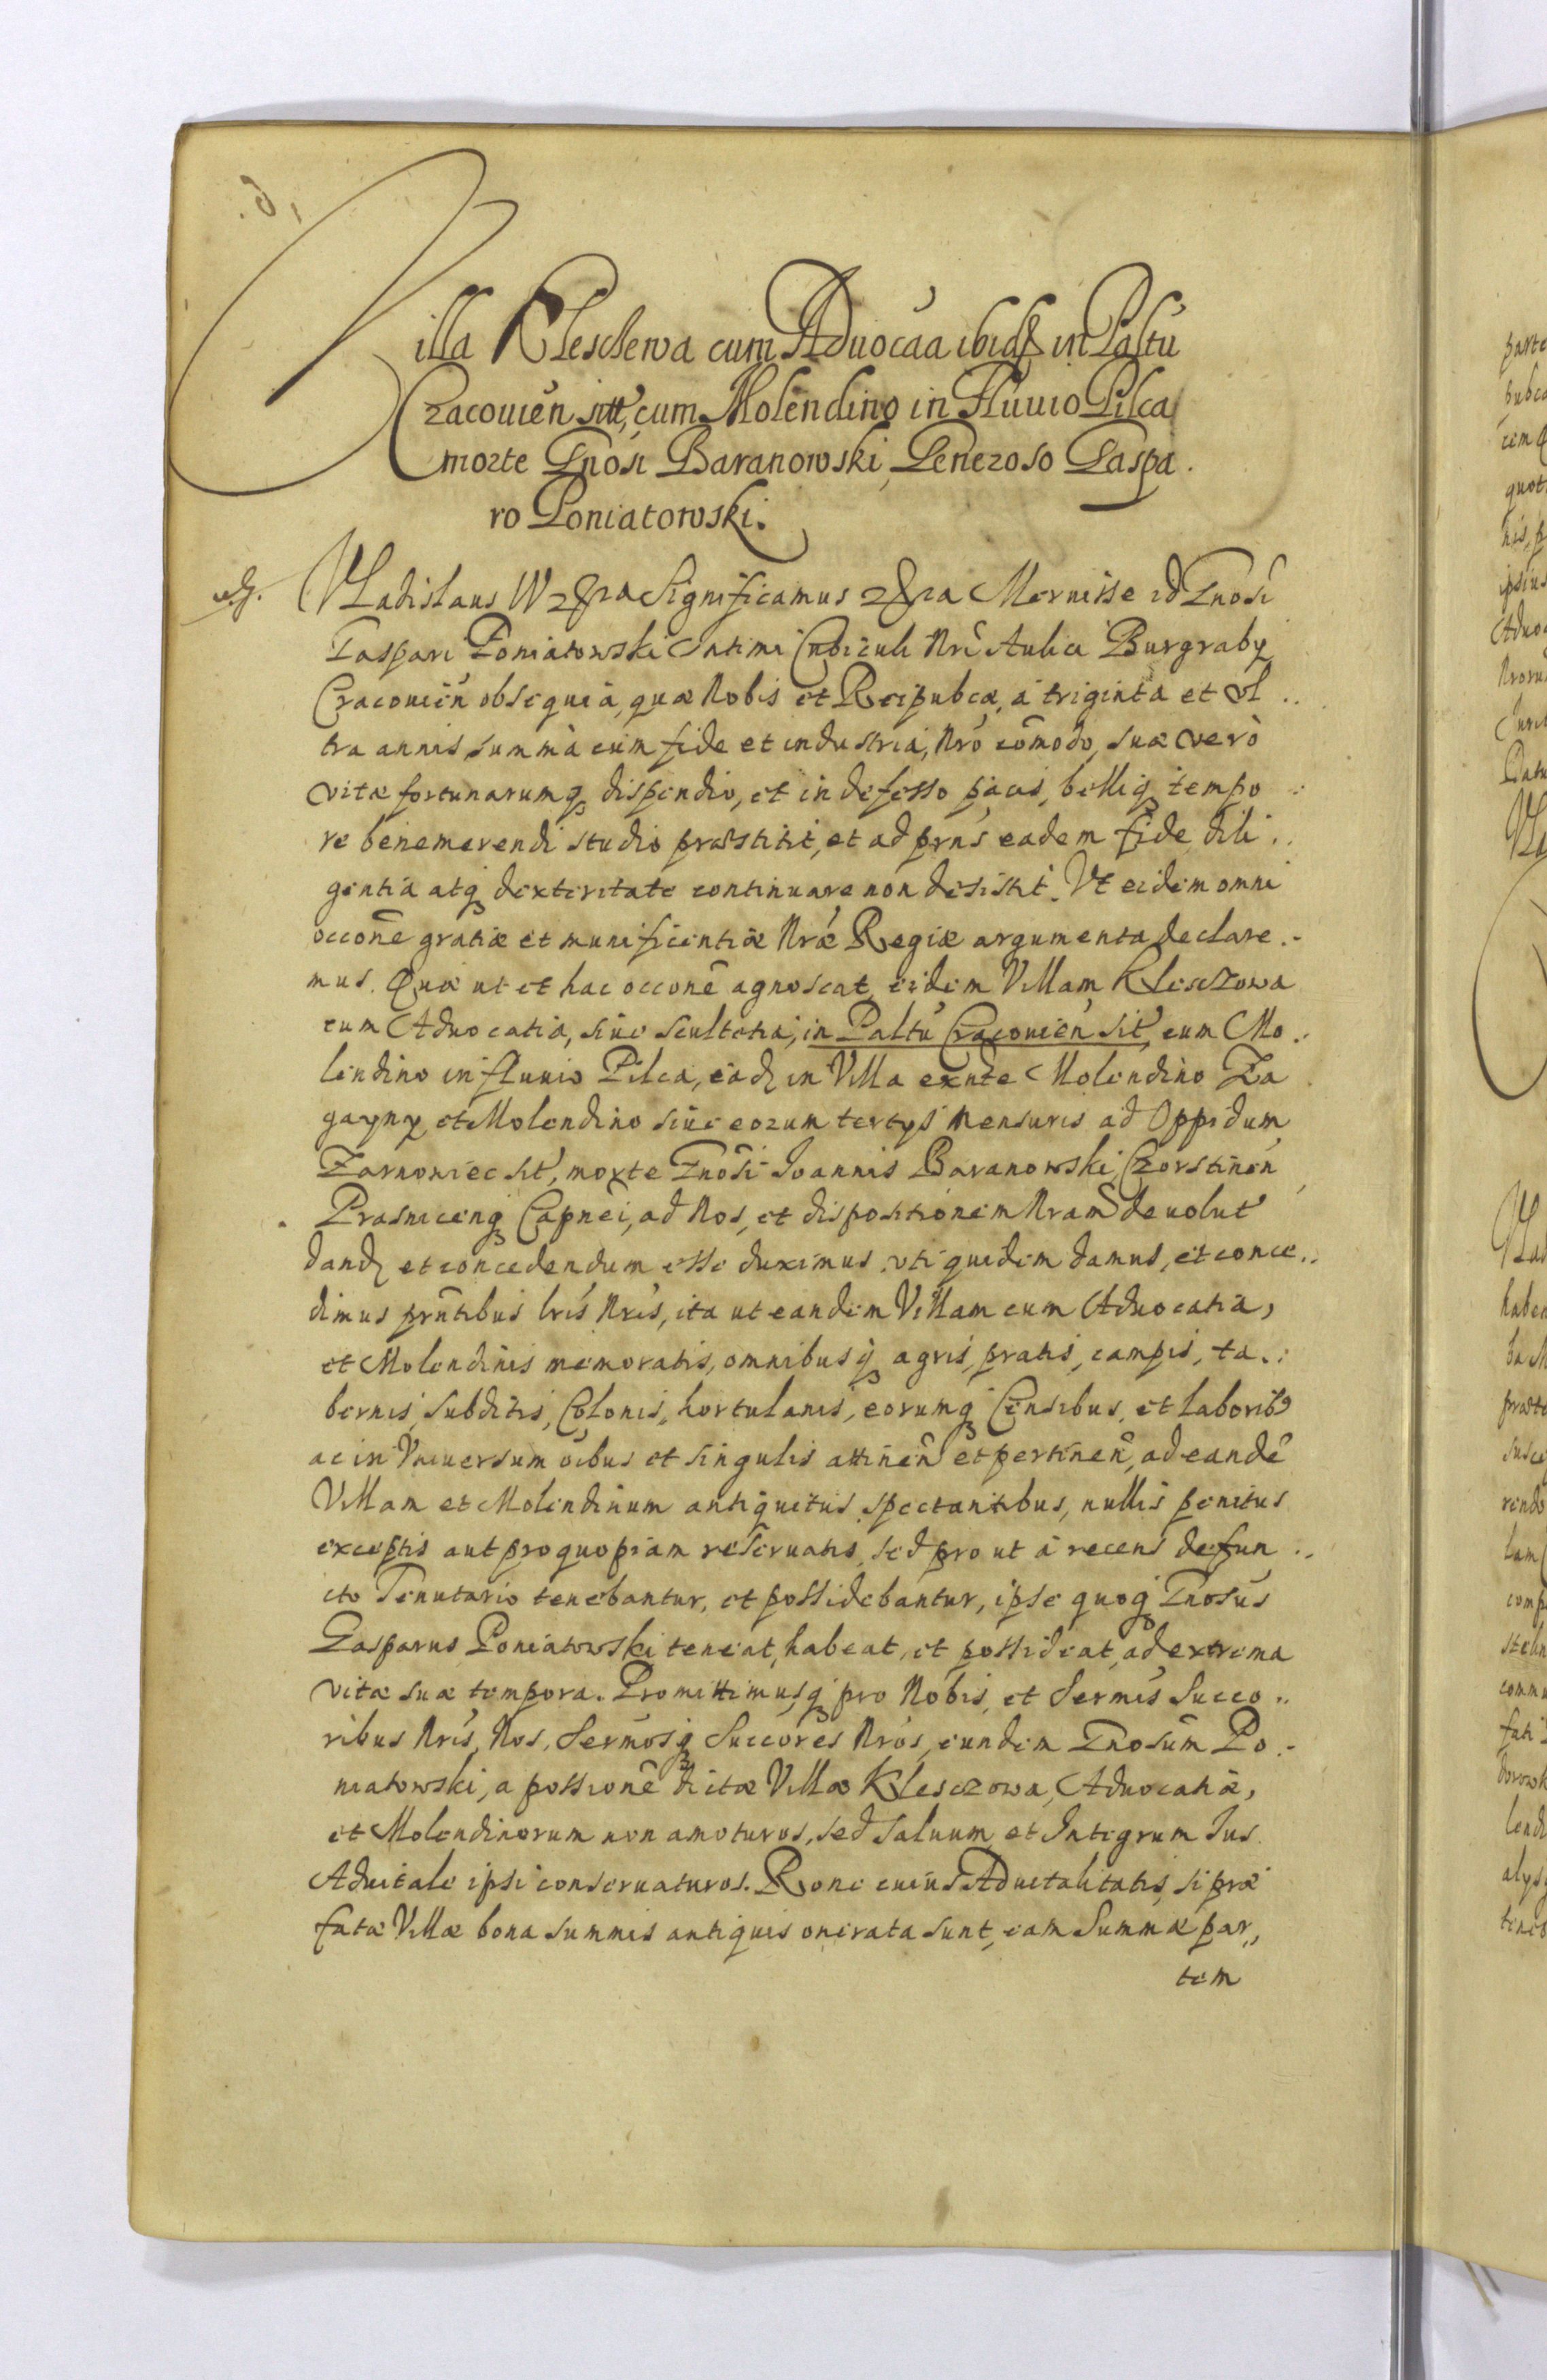 Villa Kleschewa cum Aduocaa ibidē in Paltu
Czacouien sitt, cum Molendino in Fluuio Pilca
morte Gnosi Baranowski, Generoso Gaspa
ro Poniatowski.
Vladislaus Significamus Meruisse id Gnosi
Gaspari Poniatowski Intimi Cubiculi Nri Aulici Burgraby
Cracouien obsequia, quæ Nobis et Reipubcæ, à triginta et vl
tra annis summà cum fide et industria, Nrò cōmodo, suæ verò
vitæ fortunarumq dispendio, et indefesso pacis, belliq tempo
re benemerendi studio præstitit, et ad prns eadem fide dili
gentia atq dexteritate continuare non desistit. Vt eidem omni
occone gratiæ et munificentiæ Nræ Regiæ argumenta declare
mus. Quæ ut et hac occone agnoscat, eidem Villam Klesczowa
cum Aduocatia, siue scultetia, in Paltu Cracouien sit, cum Mo
lendino in fluuio Pilca, eadq in Villa exnte Molendino Za
gayny et Molendino siue eorum tertys mensuris ad Oppidum
Zarnowiec sit, morte Gnosi Joannis Baranowski, Czorstinen
Prasnicenq Capnei, ad Nos, et dispositionem Nram deuolut
dand et concedendum esse duximus. vti quidem damus, et conce
dimus prntibus lris Nris, ita ut eandem Villam cum Aduocatia,
et Molendinis memoratis, omnibusq agris, pratis, campis, ta
bernis, subditis, Colonis, hortulanis, eorumq Censibus, et laborib9
ac in Vniuersum oibus et singulis attinen et pertinen, ad eandē
Villam et Molendinum antiquitus spectantibus, nullis penitus
exceptis aut pro quopiam reseruatis, sed pro ut à recens defun
cto Tenutario tenebantur, et possidebantur, ipse quoq Gnosus
Gasparus Poniatowski teneat, habeat, et possideat, ad extrema
vitæ suæ tempora. Promittimusq pro Nobis, et Sermis Succo
ribus Nris, Nos, Sermosq Succores Nros, eundem Gnosum Po
niatowski, a possione dictæ Villæ Klesczowa, Aduocatiæ,
et Molendinorum non amoturos, sed saluum et Integrum Ius
Aduitale ipsi conseruaturos. Rone cuius Aduitalitatis, si præ
fatæ Villæ bona summis antiquis onerata sunt, eam Summæ par„
tem